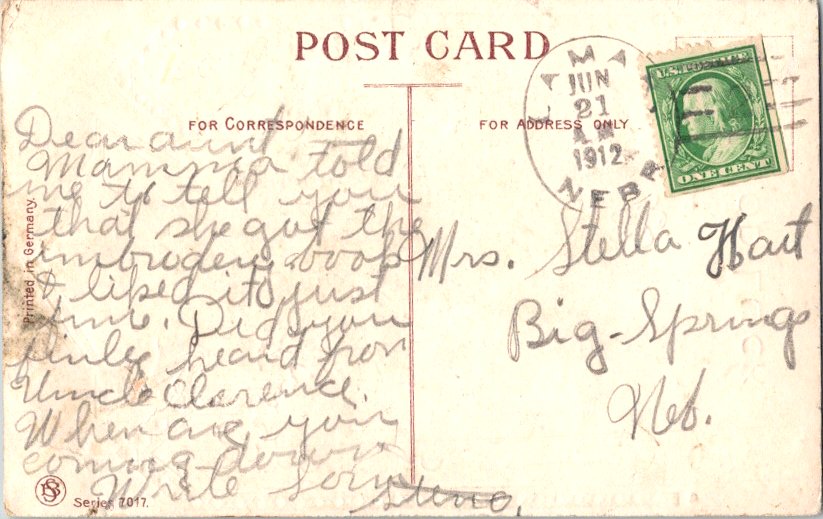 POST CARD
FOR CORRESPONDENCE
FOR ADDRESS ONLY
Dear aunt
Mamma told
me to tell you
that she got the
imbrodery book
& liked it just
fine. Did you
heard from
Uncle Clarence.
When are you
coming down
Write Soon
JUN
21
1912
NEBR
U.S. POSTAGE
ONE CENT
Mrs. Stella Hart
Big-Springs
Neb.
Printed in Germany.
Series 7017.